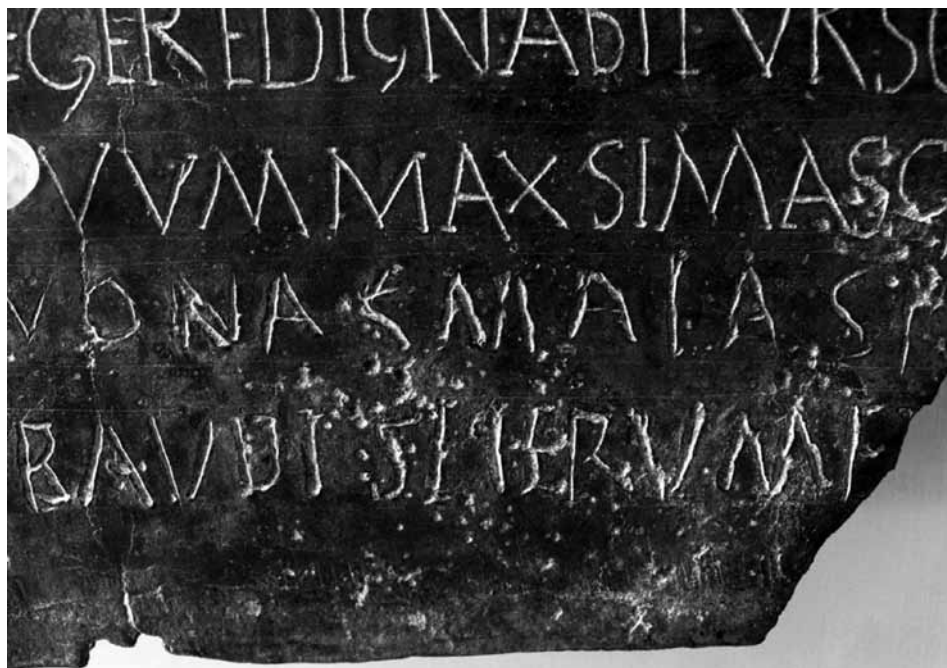 EGEREDIGNABITVRSC
VVMMAXSIMASC
VONASMALASP
BAVDISITERVMF